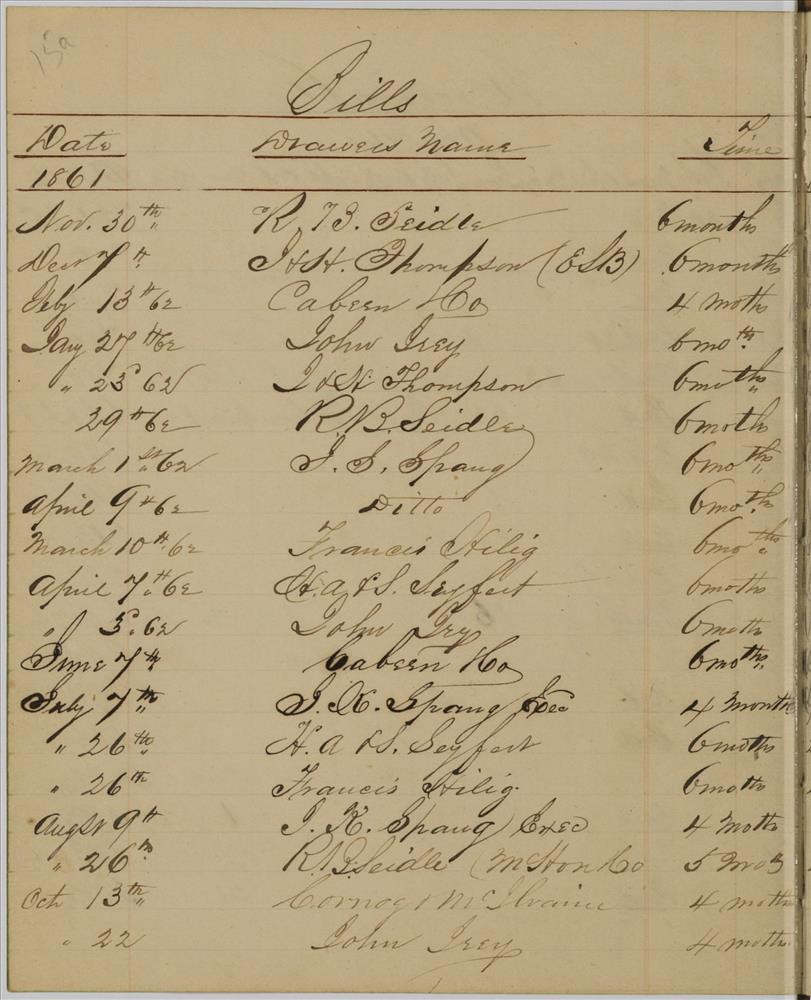 15a
Bills
Date Drawers Name Time
1861
Nov. 30th R. B. Seidle 6months
Decr 7th J & H. Thompson (ESB) 6months
Feby 13th 62 Cabeen & Co 4 moths
Jany 27th 62 John Irey 6moth.
" 23d 62 J & H. Thompson 6moths
29th 62 R. B. Seidle 6moths
March 1st 62 J. S. Spang 6moths
April 9th 62 Ditto 6moths
March 10th 62 Francis Hilig 6moths
April 7th 62 H. A. & S. Seyfert 6moths
" 3d. 62 John Irey 6moths
June 7th Cabeen & Co 6moths
July 7th J. K. Spang Exec 4 months
" 26th H. A & S. Seyfert 6moths
" 26th Francis Hilig. 6moths
Augst 9th J. K. Spang Exec 4 moths
" 26th R. B. Seidle 5 moths
Oct 13th Cornog & McIlvaine 4 moths
" 22 John Irey 4 moths